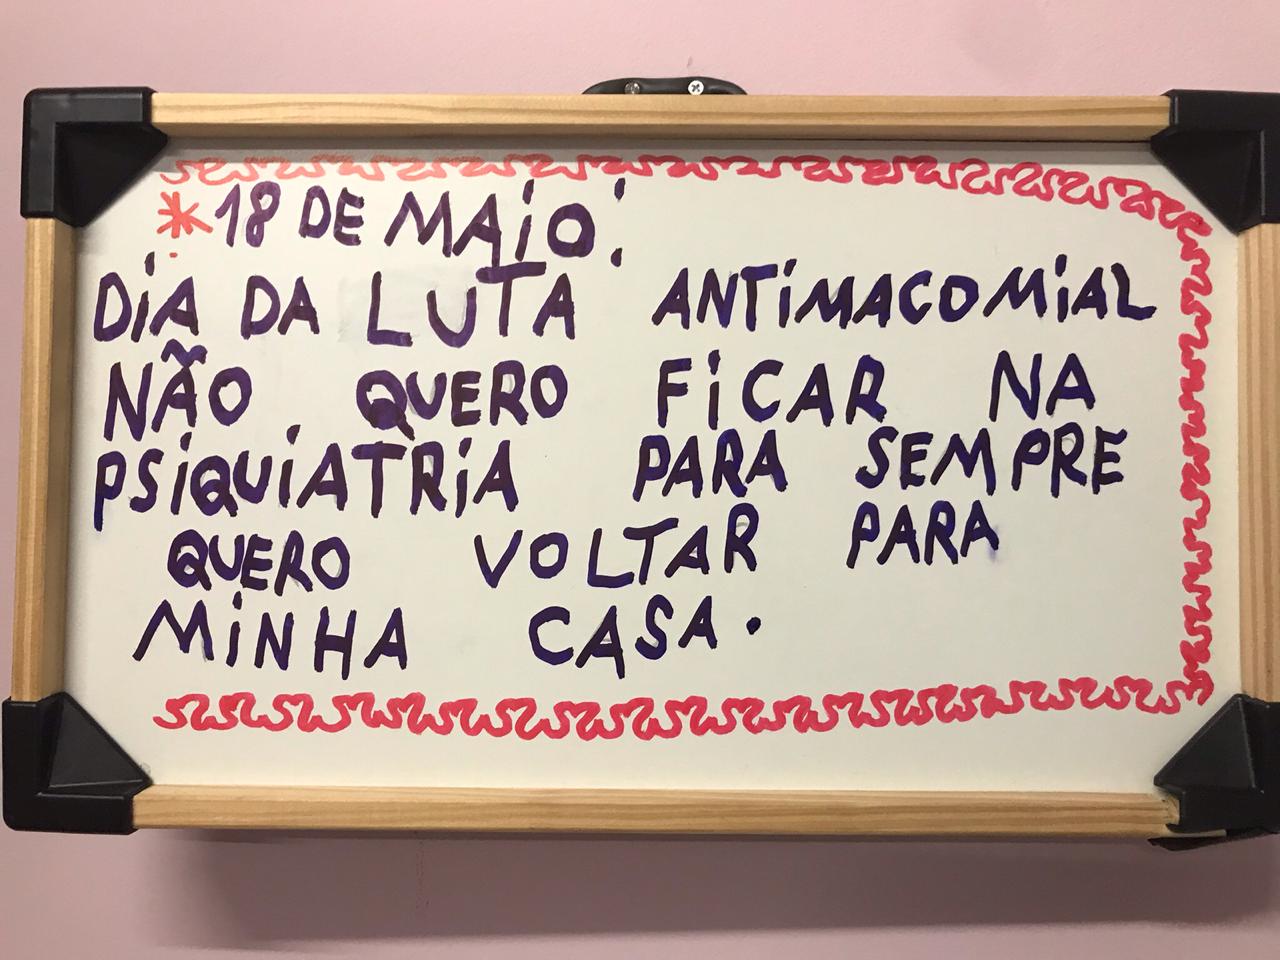 * 18 DE MAiO:
DiA DA LUTA ANTiMACOMiAL
NÃO QUERO FiCAR NA
PSiQUiATRiA PARA SEMPRE
QUERO VOLTAR PARA
MiNHA CASA.